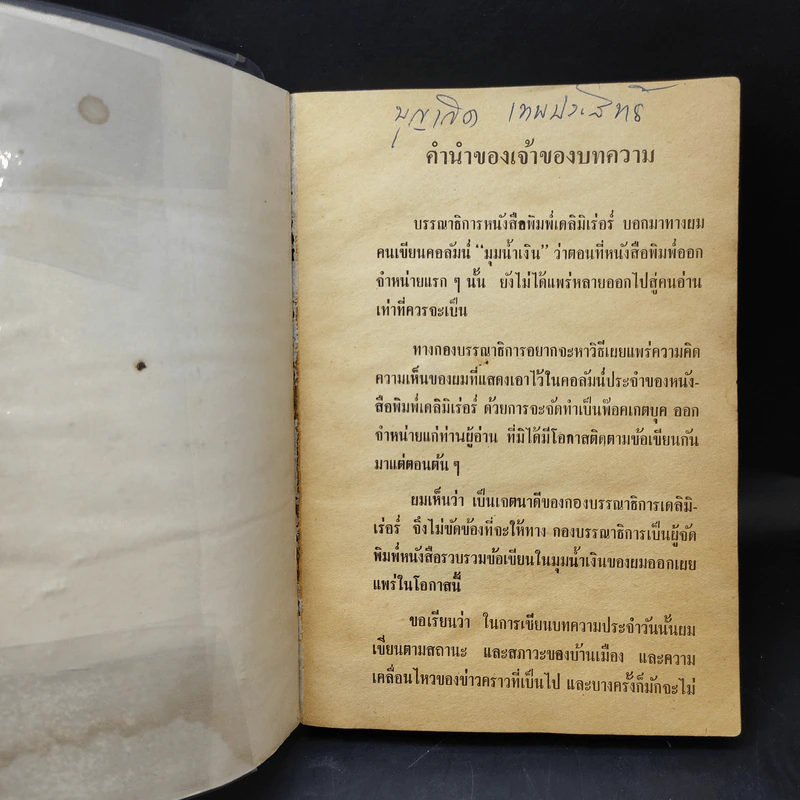 บุญเลิศ เทพประสิทธิ์
คำนำของเจ้าของบทความ
บรรณาธิการหนังสือพิมพ์เดลิมิเร่อร์ บอกมาทางผม
คนเขียนคอลัมน์ “มุมน้ำเงิน” ว่าตอนที่หนังสือพิมพ์ออก
จำหน่ายแรก ๆ นั้น ยังไม่ได้แพร่หลายออกไปสู่คนอ่าน
เท่าที่ควรจะเป็น
ทางกองบรรณาธิการอยากจะหาวิธีเผยแพร่ความคิด
ความเห็นของผมที่แสดงเอาไว้ในคอลัมน์ประจำของหนัง-
สือพิมพ์เดลิมิเร่อร์ ด้วยการจะจัดทำเป็นพ๊อคเกตบุค ออก
จำหน่ายแก่ท่านผู้อ่าน ที่มิได้มีโอกาสติดตามข้อเขียนกัน
มาแต่ตอนต้น ๆ
ผมเห็นว่า เป็นเจตนาดีของกองบรรณาธิการเดลิมิ-
เร่อร์ จึงไม่ขัดข้องที่จะให้ทาง กองบรรณาธิการเป็นผู้จัด
พิมพ์หนังสือรวบรวมข้อเขียนในมุมน้ำเงินของผมออกเผย
แพร่ในโอกาสนี้
ขอเรียนว่า ในการเขียนบทความประจำวันนั้นผม
เขียนตามสถานะ และสภาวะของบ้านเมือง และความ
เคลื่อนไหวของข่าวคราวที่เป็นไป และบางครั้งก็มักจะไม่